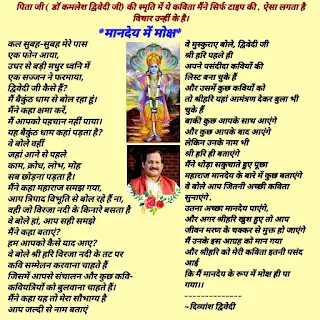 पिता जी ( डॉ कमलेश द्विवेदी जी) की स्मृति में ये कविता मैंने सिर्फ टाइप की , ऐसा लगता है
विचार उन्हीं के है।
*मानदेय में मोक्ष*
कल सुबह-सुबह मेरे पास
एक फोन आया,
उधर से बड़ी मधुर ध्वनि में
एक सज्जन ने फरमाया,
द्विवेदी जी कैसे हैं?
मैं बैकुंठ धाम से बोल रहा हूं।
मैंने कहा क्षमा करें,
मैं आपको पहचान नहीं पाया।
यह बैकुंठ धाम कहां पड़ता है?
वे बोले वहीं
जहां आने से पहले
काम, क्रोध, लोभ, मोह
सब छोड़ना पड़ता है।
मैंने कहा महाराज समझ गया,
आप त्रिपाद विभूति से बोल रहे हैं ना,
वही जो विरजा नदी के किनारे बसता है
वे बोले हां, आप सही समझे
मैंने कहा बताएं?
हम आपको कैसे याद आए?
वे बोले श्री हरि विरजा नदी के तट पर
कवि सम्मेलन करवाना चाहते हैं
जिसमें आपसे संचालन और कुछ कवि-
कवियत्रियों को बुलवाना चाहते हैं।
मैंने कहा यह तो मेरा सौभाग्य है
आप जल्दी से नाम बताएं
वे मुस्कुराए बोले, द्विवेदी जी
श्री हरि पहले ही
अपने पसंदीदा कवियों की
लिस्ट बना चुके हैं
और उसमें कुछ कवियों को
तो श्रीहरि यहां आमंत्रण देकर बुला भी
चुके हैं
बाकी कुछ आपके साथ आएंगे
और कुछ आपके बाद आएंगे
लेकिन उनके नाम भी
श्री हरि ही बताएंगे
मैंने थोड़ा सकुचाते हुए पूछा
महाराज मानदेय के बारे में कुछ बताएंगे
वे बोले आप जितनी अच्छी कविता
सुनाएंगे .
उतना अच्छा मानदेय पाएंगे,
और अगर श्रीहरि खुश हुए तो आप
जीवन मरण के चक्कर से मुक्त हो जाएंगे
मैं उनके इस आग्रह को मान गया
और श्रीहरि को मेरी कविता इतनी पसंद
आई
कि मैं मानदेय के रूप में मोक्ष ही पा
गया।।
---------------
~दिव्यांश द्विवेदी